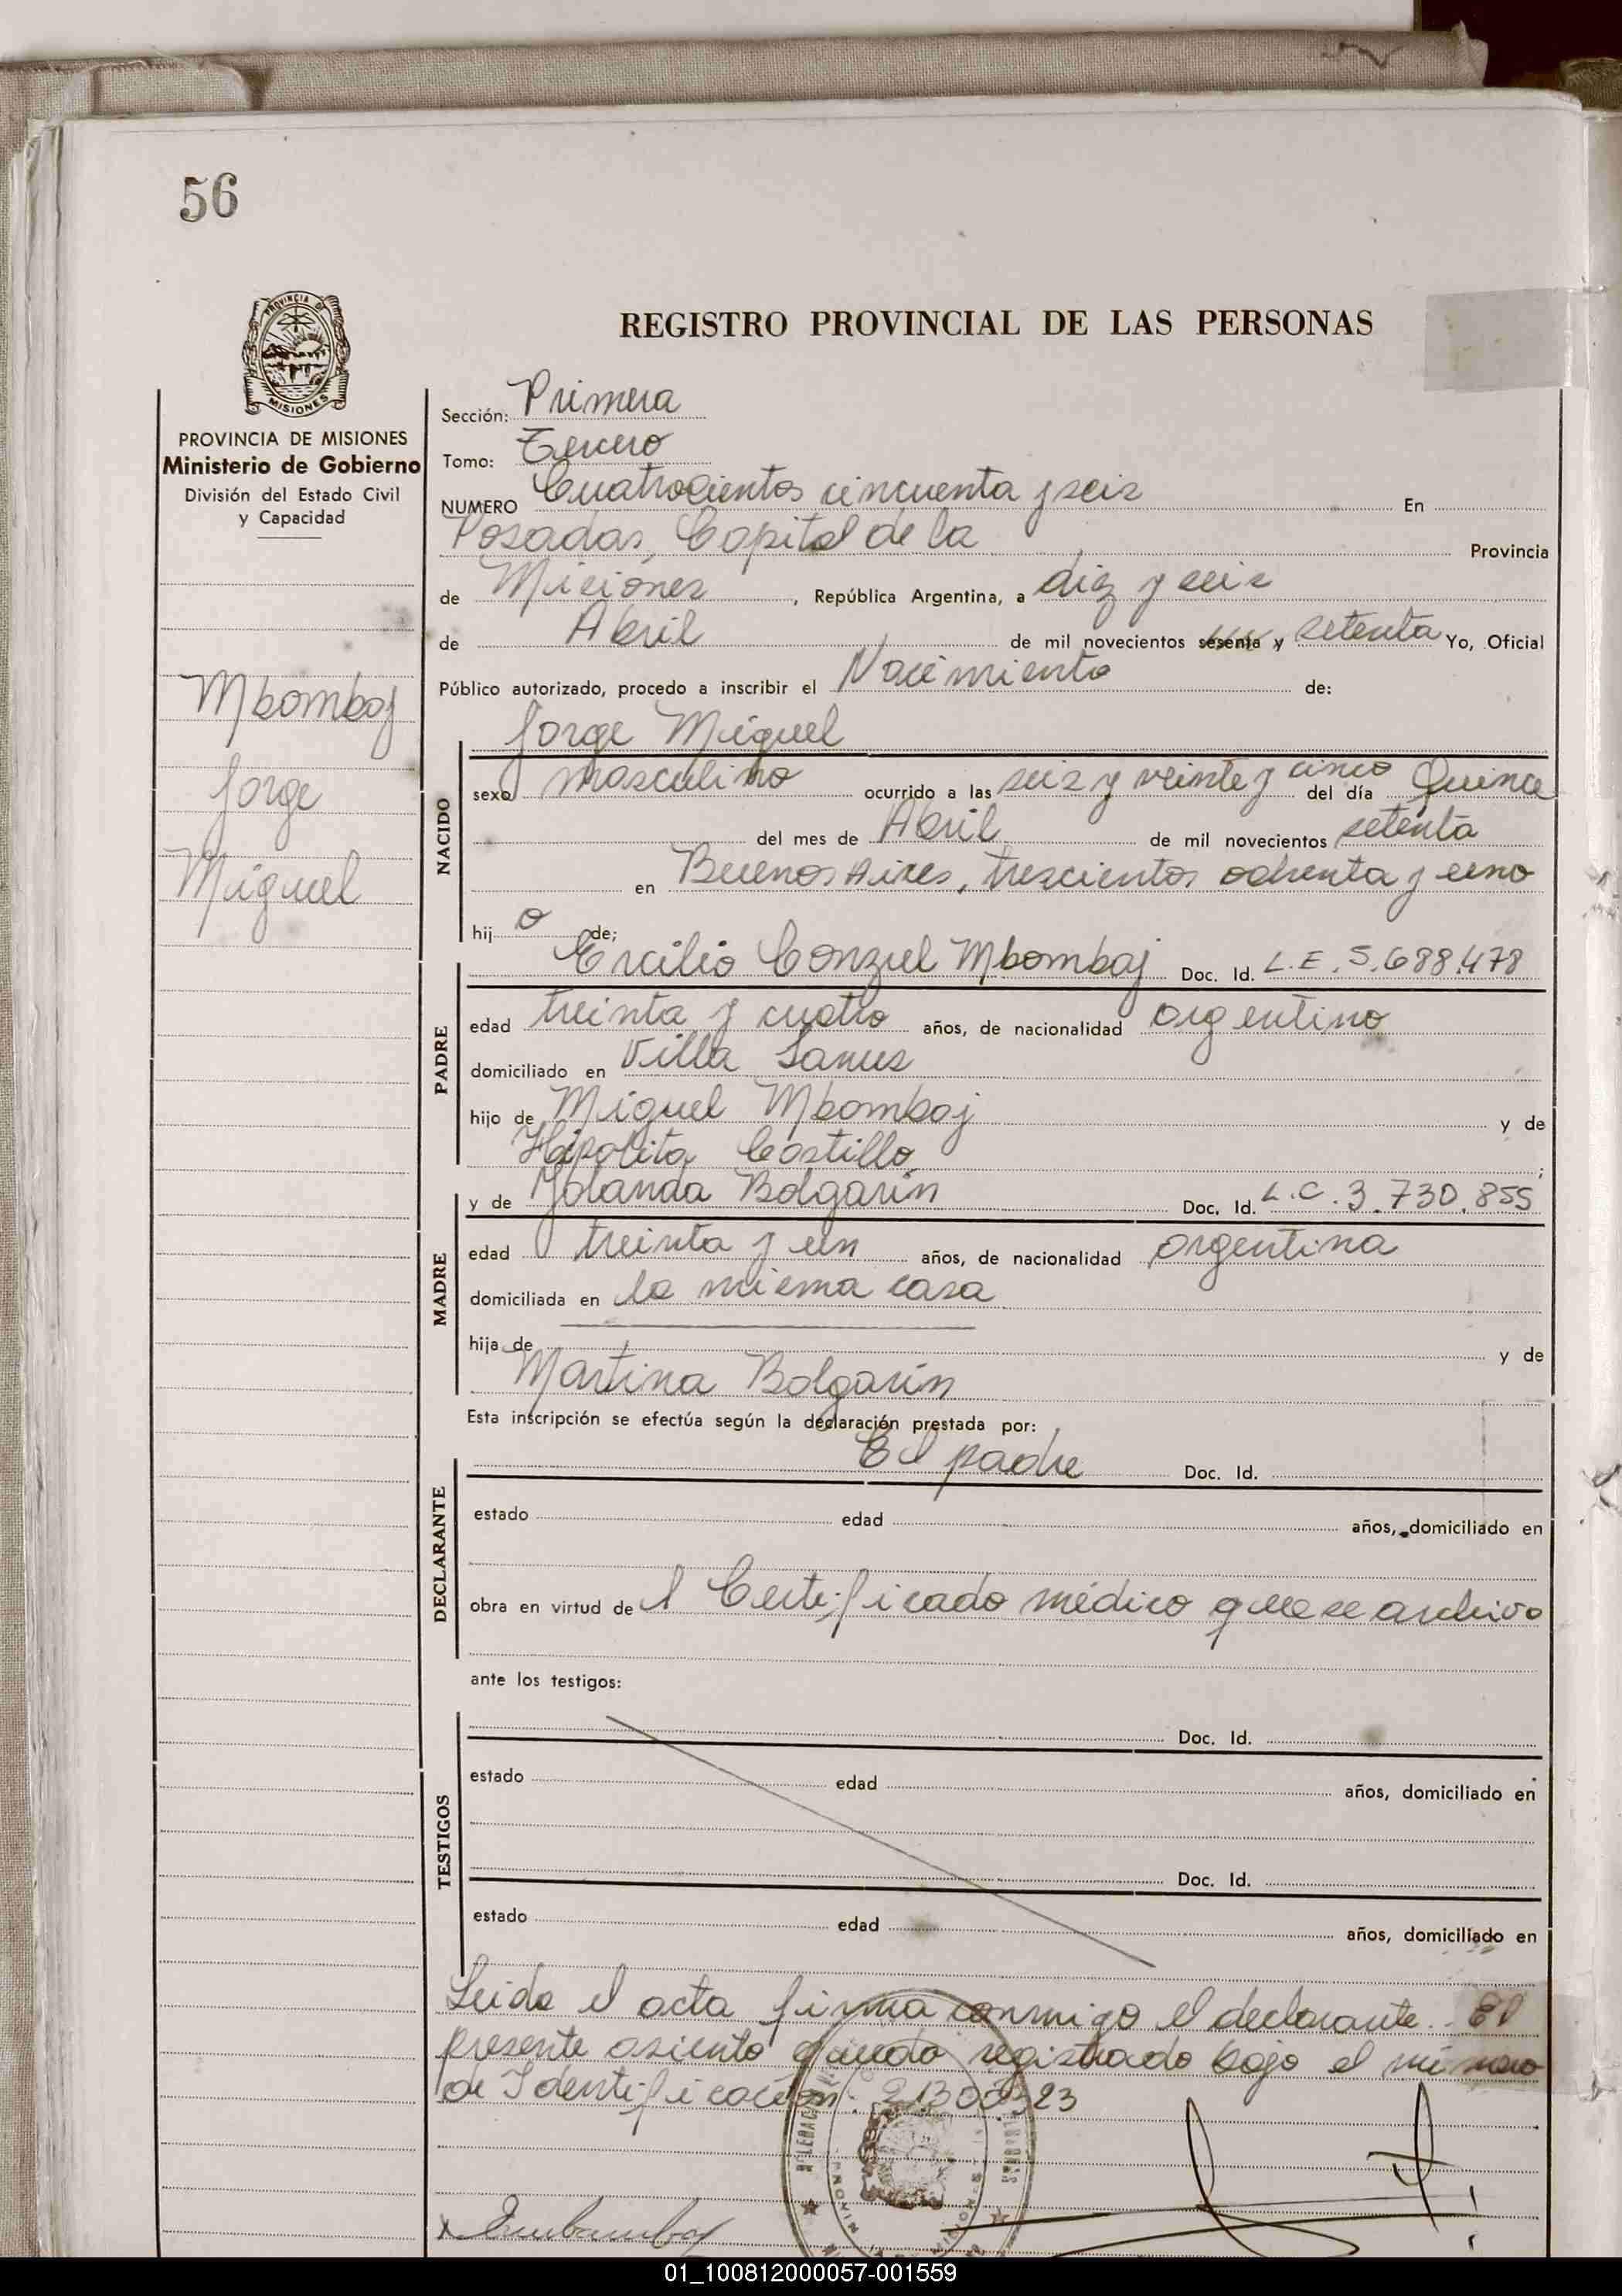 56
REGISTRO PROVINCIAL DE LAS PERSONAS
PROVINCIA DE MISIONES
Ministerio de Gobierno
División del Estado Civil
y Capacidad
Mbombaj
Jorge
Miguel
Sección: Primera
Tomo: Tercero
NUMERO Cuatrocientos cincuenta y seis En
Posadas, Capital de la Provincia
de Misiones, República Argentina, a diez y seis
de Abril de mil novecientos sesenta y setenta Yo, Oficial
Público autorizado, procedo a inscribir el Nacimiento de:
Jorge Miguel
NACIDO
sexo masculino ocurrido a las seis y veinte y cinco del día Quince
del mes de Abril de mil novecientos setenta
en Buenos Aires, trescientos ochenta y uno
hijo de;
Ercilio Conzuel Mbombaj Doc. Id. L.E. 5.688.478
PADRE
edad treinta y cuatro años, de nacionalidad argentino
domiciliado en Villa Lanus
hijo de Miguel Mbombaj y de
Hipolita Castillo ;
y de Yolanda Bolgarin Doc. Id. L.C. 3.730.855
MADRE
edad treinta y un años, de nacionalidad argentina
domiciliada en la misma casa
hija de y de
Martina Bolgarin
Esta inscripción se efectúa según la declaración prestada por:
El padre Doc. Id.
DECLARANTE
estado edad años, domiciliado en
obra en virtud de l Certificado médico que se archivo
ante los testigos:
Doc. Id.
TESTIGOS
estado edad años, domiciliado en
Doc. Id.
estado edad años, domiciliado en
Leida el acta firma conmigo el declarante. El
presente asiento queda registrado bajo el número
de Identificación:
01_100812000057-001559